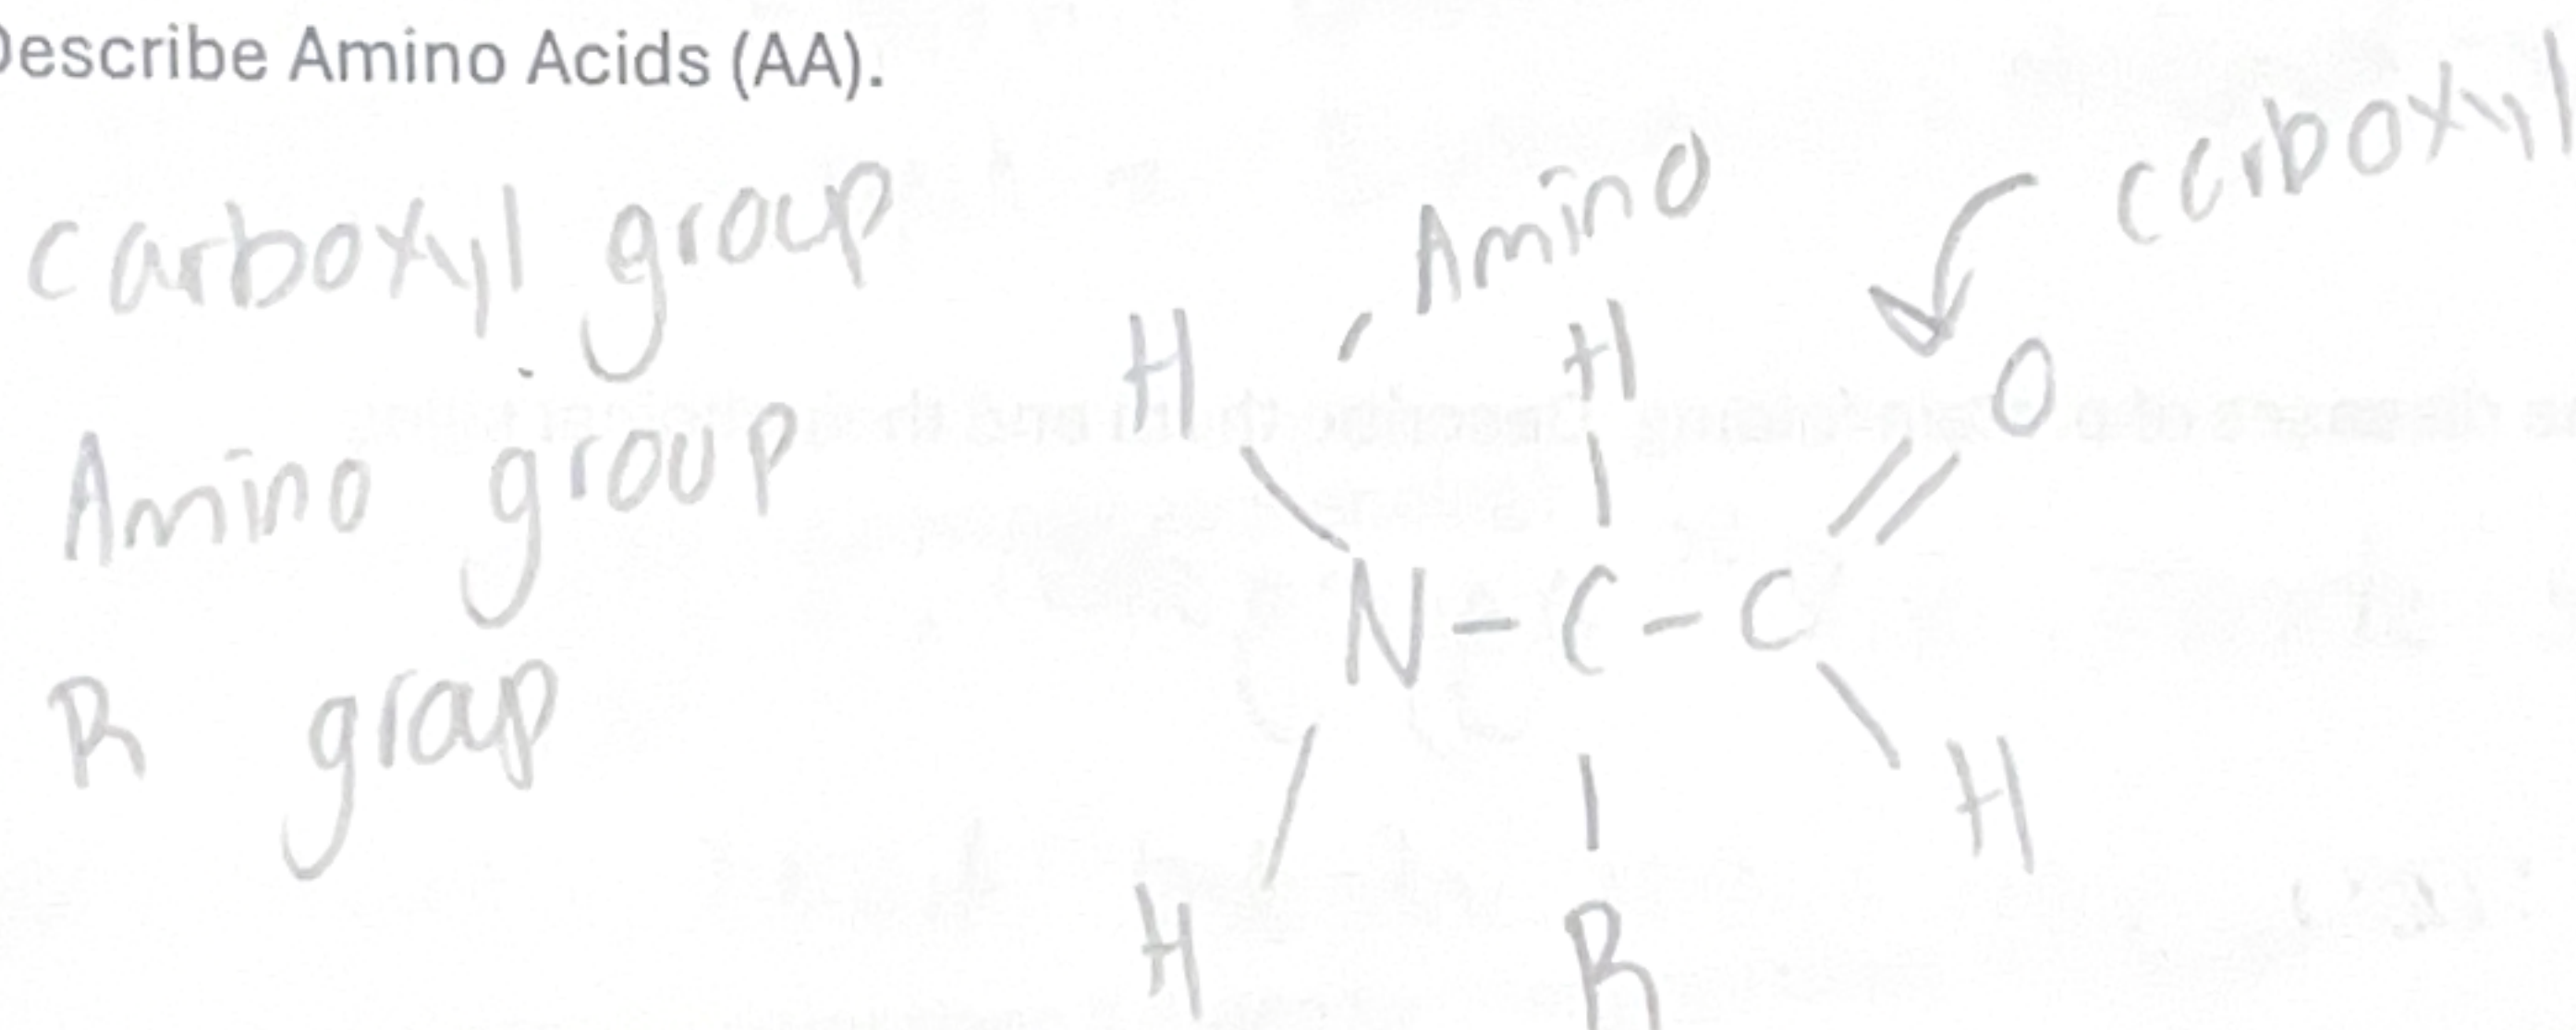 Describe Amino Acids (AA).
carboxyl group
Amino group
R group
Amino
carboxyl
H
H
O
N - C - C
H
H
R